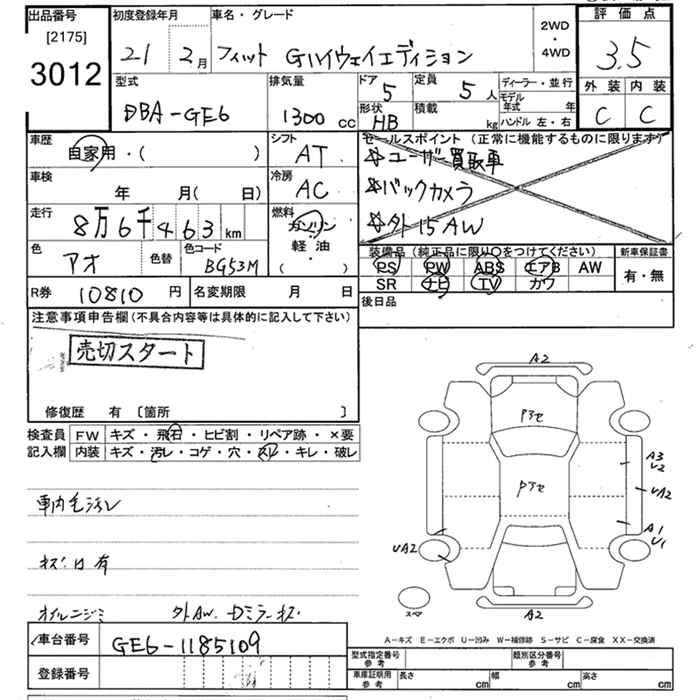 出品番号
[2175]
3012
初度登録年月
21 2月
車名・グレード
フィット Gハイウェイエディション
2WD
・
4WD
評価点
3.5
外装 内装
C C
型式
DBA-GE6
排気量
1300 cc
ドア
5
定員
5人
形状
HB
積載
kg
ディーラー・並行
モデル
年式 年
ハンドル 左・右
車歴
自家用・( )
シフト
AT
セールスポイント (正常に機能するものに限ります)
☆ユーザー買取車
☆バックカメラ
☆外15AW
車検
年 月( 日)
冷房
AC
走行
8万6千463km
燃料
ガソリン
軽油
( )
色
アオ
色替
色コード
BG53M
装備品 (純正品に限り○をつけてください)
PS PW ABS エアB AW
SR ナビ TV カワ
新車保証書
有・無
R券 10810円
名変期限 月 日
後日品
注意事項申告欄(不具合内容等は具体的に記入して下さい)
売切スタート
修復歴 有 [箇所 ]
検査員 FW キズ・飛石・ヒビ割・リペア跡・×要
記入欄 内装 キズ・汚レ・コゲ・穴・スレ・キレ・破レ
車内毛汚レ
ネジ口有
オイルニジミ 外AW. Dミラーキズ
車台番号
GE6-1185109
登録番号
A2
Pアセ
Pアセ
A3
U2
UA2
A1
U1
UA2
スペア
A2
A-キズ E-エクボ U-凹み W-補修跡 S-サビ C-腐食 XX-交換済
型式指定番号
参考
類別区分番号
参考
車庫証明用
参考
長さ cm 幅 cm 高さ cm